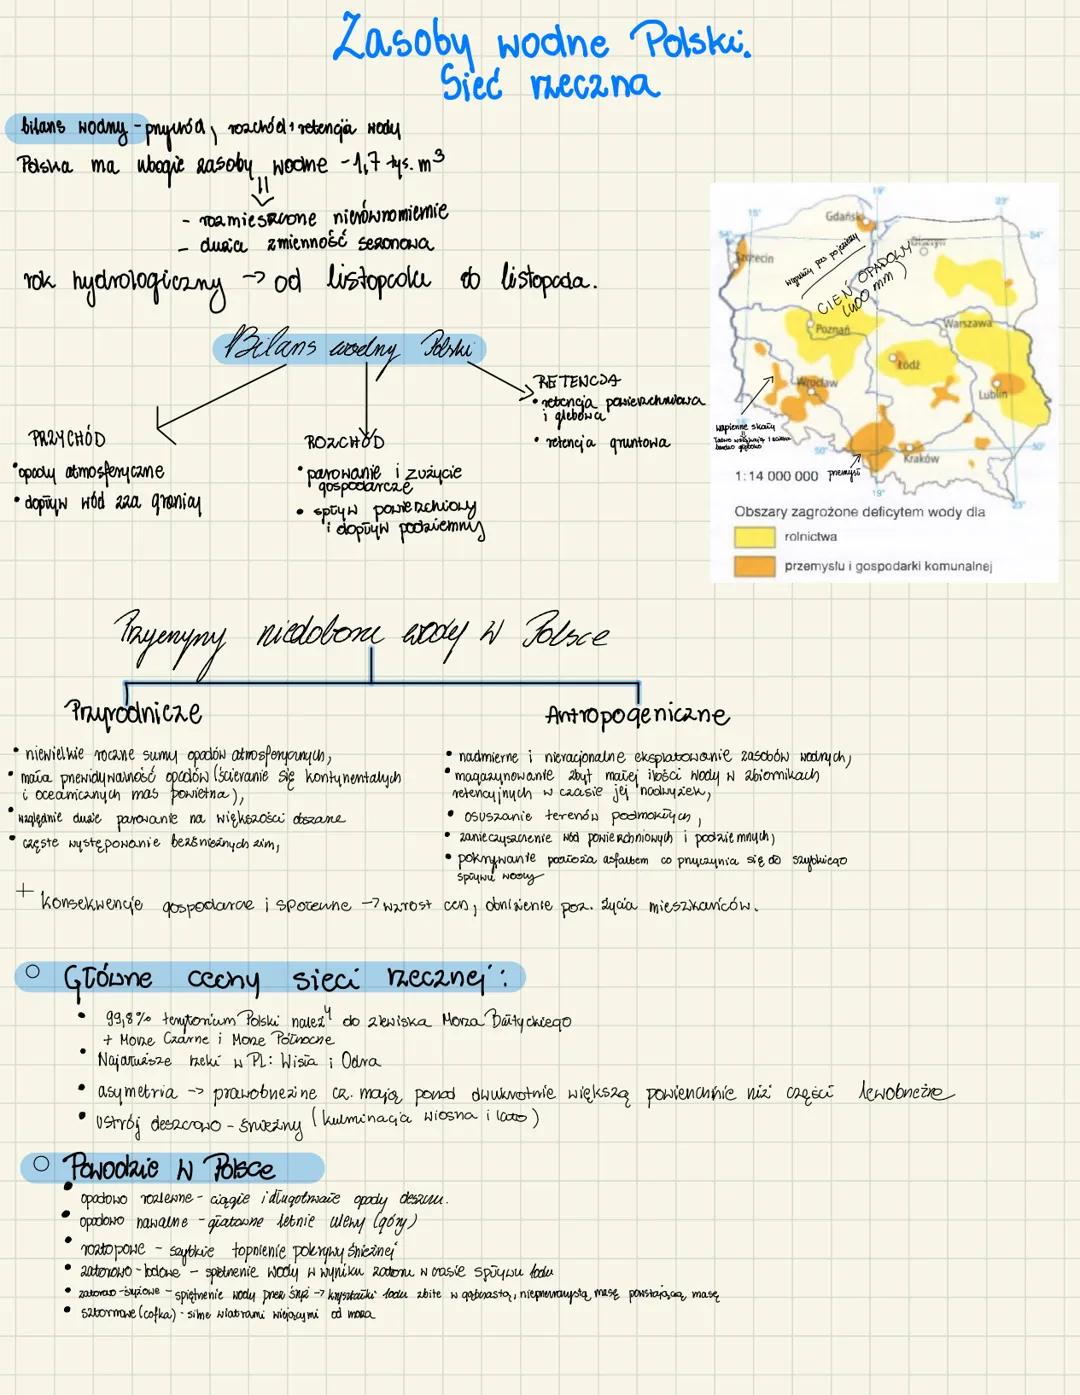 Zasoby wodne Polski.
Sieć rzeczna
bilans wodny - przychód, rozchód i retencja wody
Polska ma ubogie zasoby wodne - 1,7 tys. m³
- rozmieszczone nierównomiernie
- duża zmienność sezonowa
rok hydrologiczny → od listopada do listopada.
Bilans wodny Polski
PRZYCHÓD
• opady atmosferyczne
• dopływ wód zza granicy
ROZCHÓD
• parowanie i zużycie
gospodarcze
• spływ powierzchniowy
i dopływ podziemny
RETENCJA
• retencja powierzchniowa
i glebowa
• retencja gruntowa
15° 19° 23°
54° 54°
Gdańsk
Szczecin
Olsztyn
wypukły pas pojezierzy
CIEŃ OPADOWY
(400 mm)
Poznań
Warszawa
Łódź
Wrocław
Lublin
wapienne skały
50° 50°
Kraków
1:14 000 000 przemysł
19° 23°
Obszary zagrożone deficytem wody dla
rolnictwa
przemysłu i gospodarki komunalnej
Przyczyny niedoboru wody w Polsce
Przyrodnicze
• niewielkie roczne sumy opadów atmosferycznych,
• mała przewidywalność opadów (ścieranie się kontynentalnych
i oceanicznych mas powietrza),
• względnie duże parowanie na większości obszarze
• częste występowanie bezśnieżnych zim,
Antropogeniczne
• nadmierne i nieracjonalne eksploatowanie zasobów wodnych,
• magazynowanie zbyt małej ilości wody w zbiornikach
retencyjnych w czasie jej nadwyżek,
• osuszanie terenów podmokłych,
• zanieczyszczenie wód powierzchniowych i podziemnych,
• pokrywanie podłoża asfaltem co przyczynia się do szybkiego
spływu wody
+ konsekwencje gospodarcze i społeczne → wzrost cen, obniżenie poz. życia mieszkańców.
Główne cechy sieci rzecznej:
• 99,8% terytorium Polski należy do zlewiska Morza Bałtyckiego
+ Morze Czarne i Morze Północne
• Najdłuższe rzeki w PL: Wisła i Odra
• asymetria → prawobrzeżne cz. mają ponad dwukrotnie większą powierzchnie niż części lewobrzeżne
• ustrój deszczowo - śnieżny (kulminacja wiosna i lato)
Powodzie w Polsce
• opadowo rozlewne - ciągłe i długotrwałe opady deszczu.
• opadowo nawalne - gwałtowne letnie ulewy (góry)
• roztopowe - szybkie topnienie pokrywy śnieżnej
• zatorowo - lodowe - spiętrzenie wody w wyniku zatoru w czasie spływu lodu
• zatorowo - śryżowe - spiętrzenie wody przez śryż → kryształki lodu zbite w gąbczastą, nieprzezroczystą masę powstającą masę
• sztormowe (cofka) - silne wiatrami wiejącymi od morza